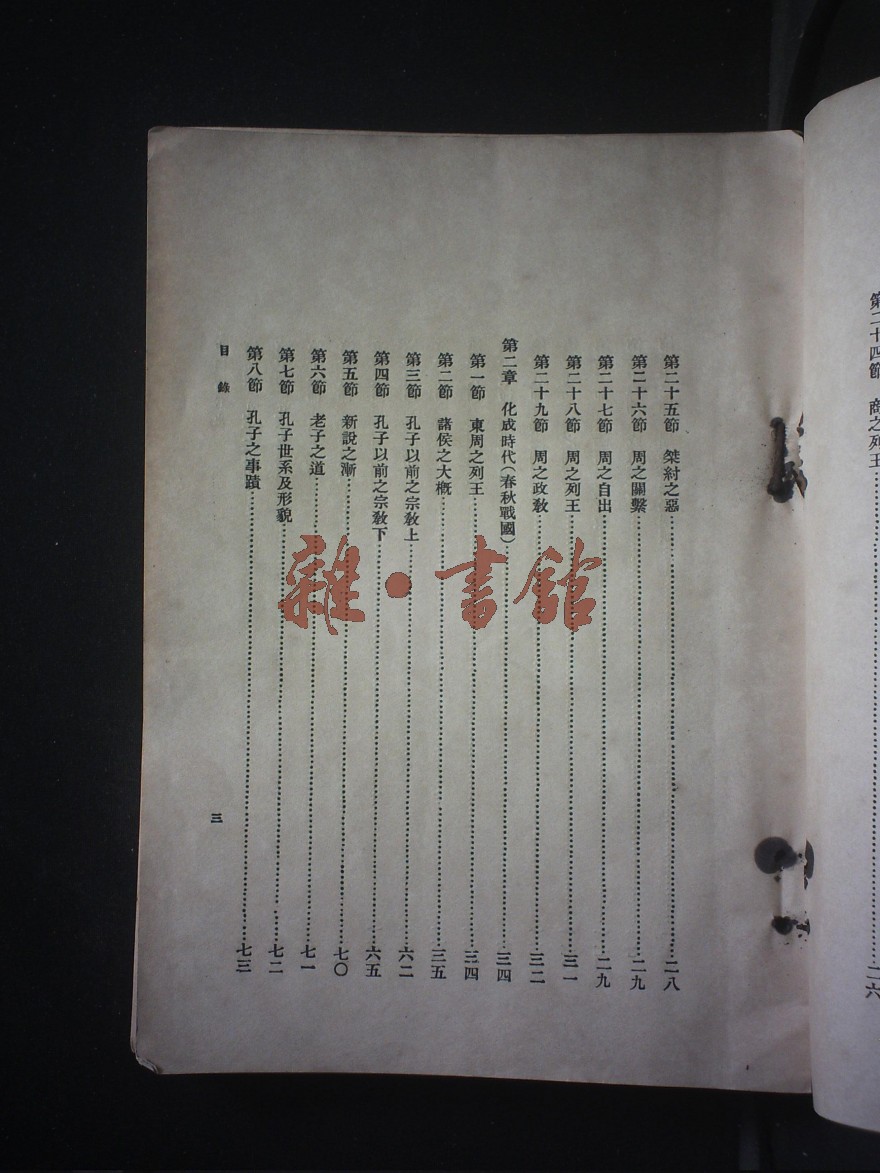 第二十四節 商之列王……二六
第二十五節 桀紂之惡……二八
第二十六節 周之關繫……二九
第二十七節 周之自出……二九
第二十八節 周之列王……三一
第二十九節 周之政敎……三二
第二章 化成時代（春秋戰國）……三四
第一節 東周之列王……三四
第二節 諸侯之大概……三五
第三節 孔子以前之宗敎上……六二
第四節 孔子以前之宗敎下……六五
第五節 新說之漸……七〇
第六節 老子之道……七一
第七節 孔子世系及形貌……七二
第八節 孔子之事蹟……七三
目錄
三
雜·書館